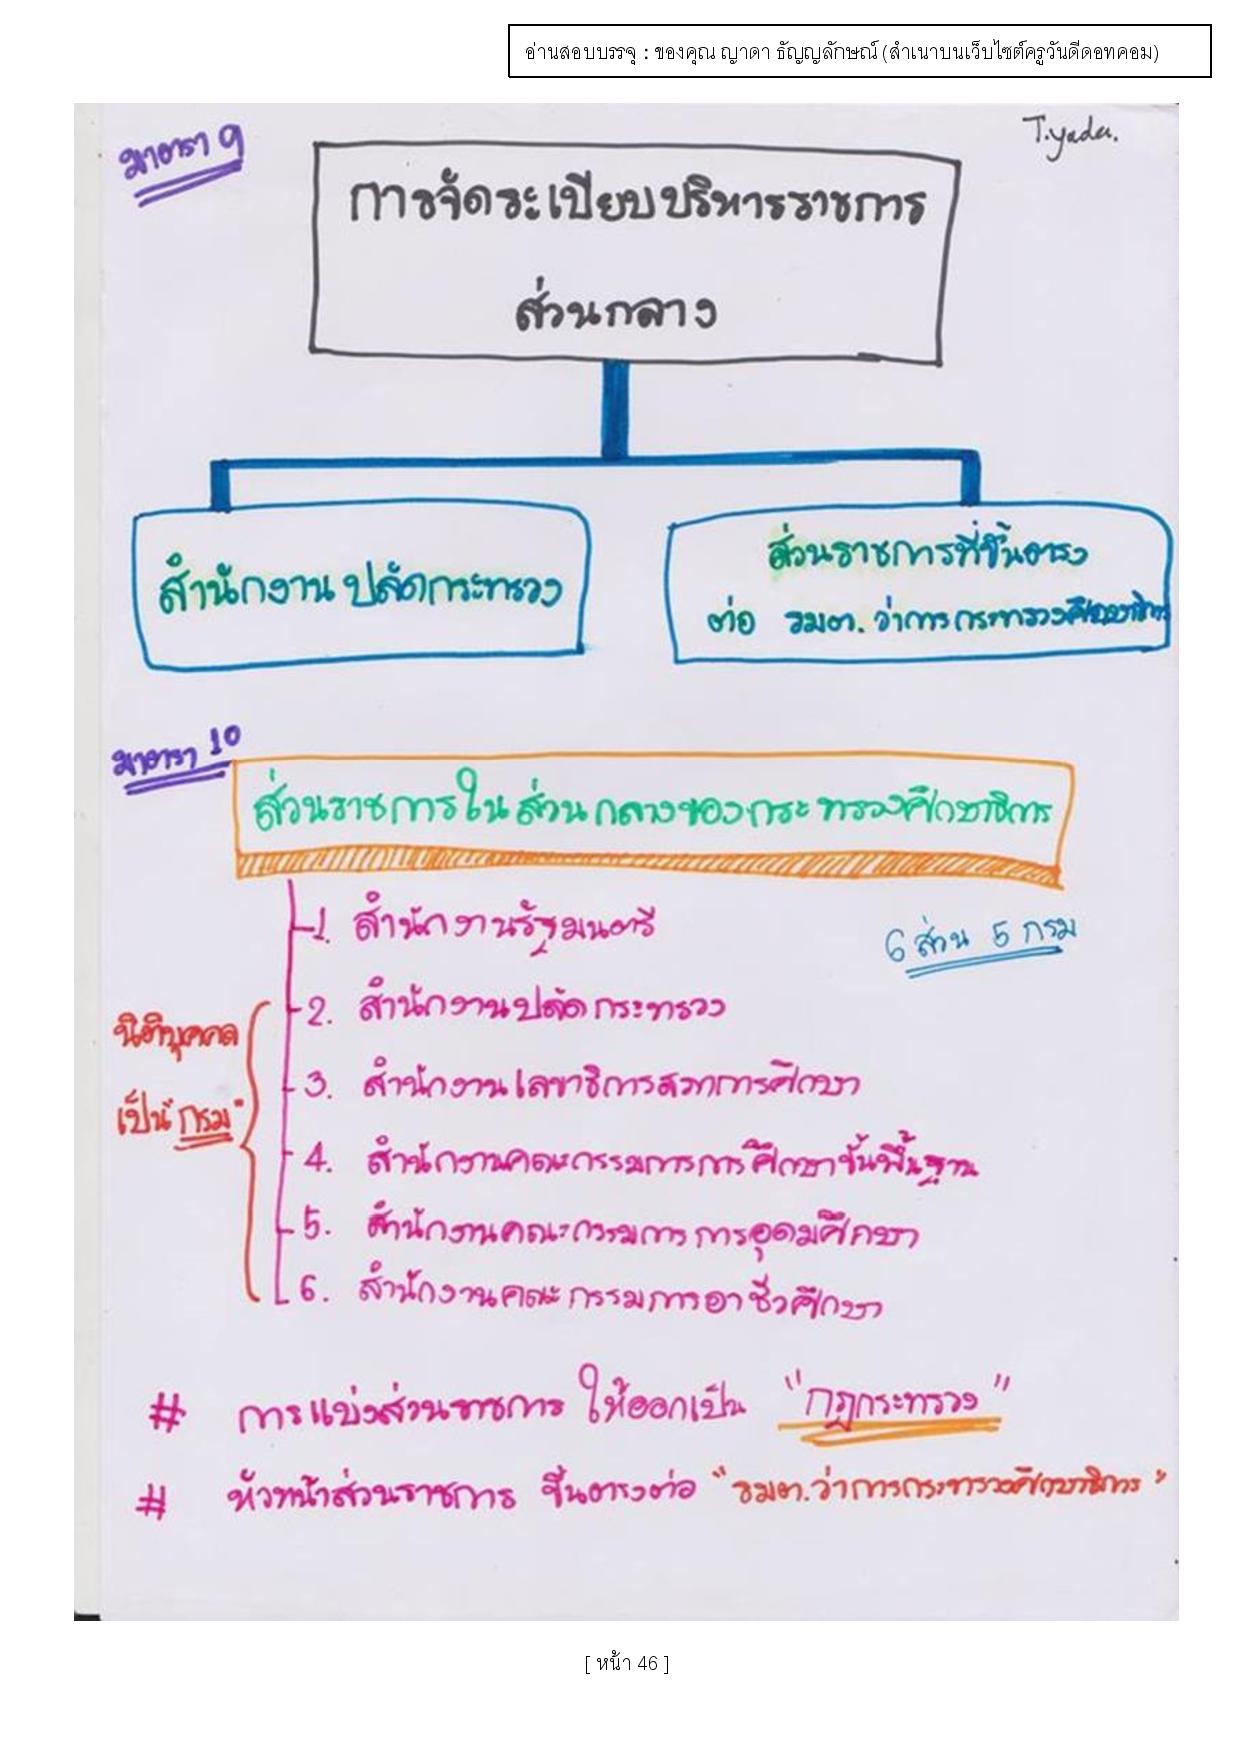 อ่านสอบบรรจุ : ของคุณ ญาดา ธัญญลักษณ์ (สำเนาบนเว็บไซต์ครูวันดีดอทคอม)
T.yada.
มาตรา 9
การจัดระเบียบบริหารราชการ
ส่วนกลาง
สำนักงานปลัดกระทรวง
ส่วนราชการที่ขึ้นตรง
ต่อ รมต. ว่าการกระทรวงศึกษาธิการ
มาตรา 10
ส่วนราชการในส่วนกลางของกระทรวงศึกษาธิการ
1. สำนักงานรัฐมนตรี
6 ส่วน 5 กรม
2. สำนักงานปลัดกระทรวง
นิติบุคคล
3. สำนักงานเลขาธิการสภาการศึกษา
เป็น "กรม"
4. สำนักงานคณะกรรมการการศึกษาขั้นพื้นฐาน
5. สำนักงานคณะกรรมการการอุดมศึกษา
6. สำนักงานคณะกรรมการอาชีวศึกษา
# การแบ่งส่วนราชการ ให้ออกเป็น "กฎกระทรวง"
# หัวหน้าส่วนราชการ ขึ้นตรงต่อ "รมต.ว่าการกระทรวงศึกษาธิการ"
[ หน้า 46 ]